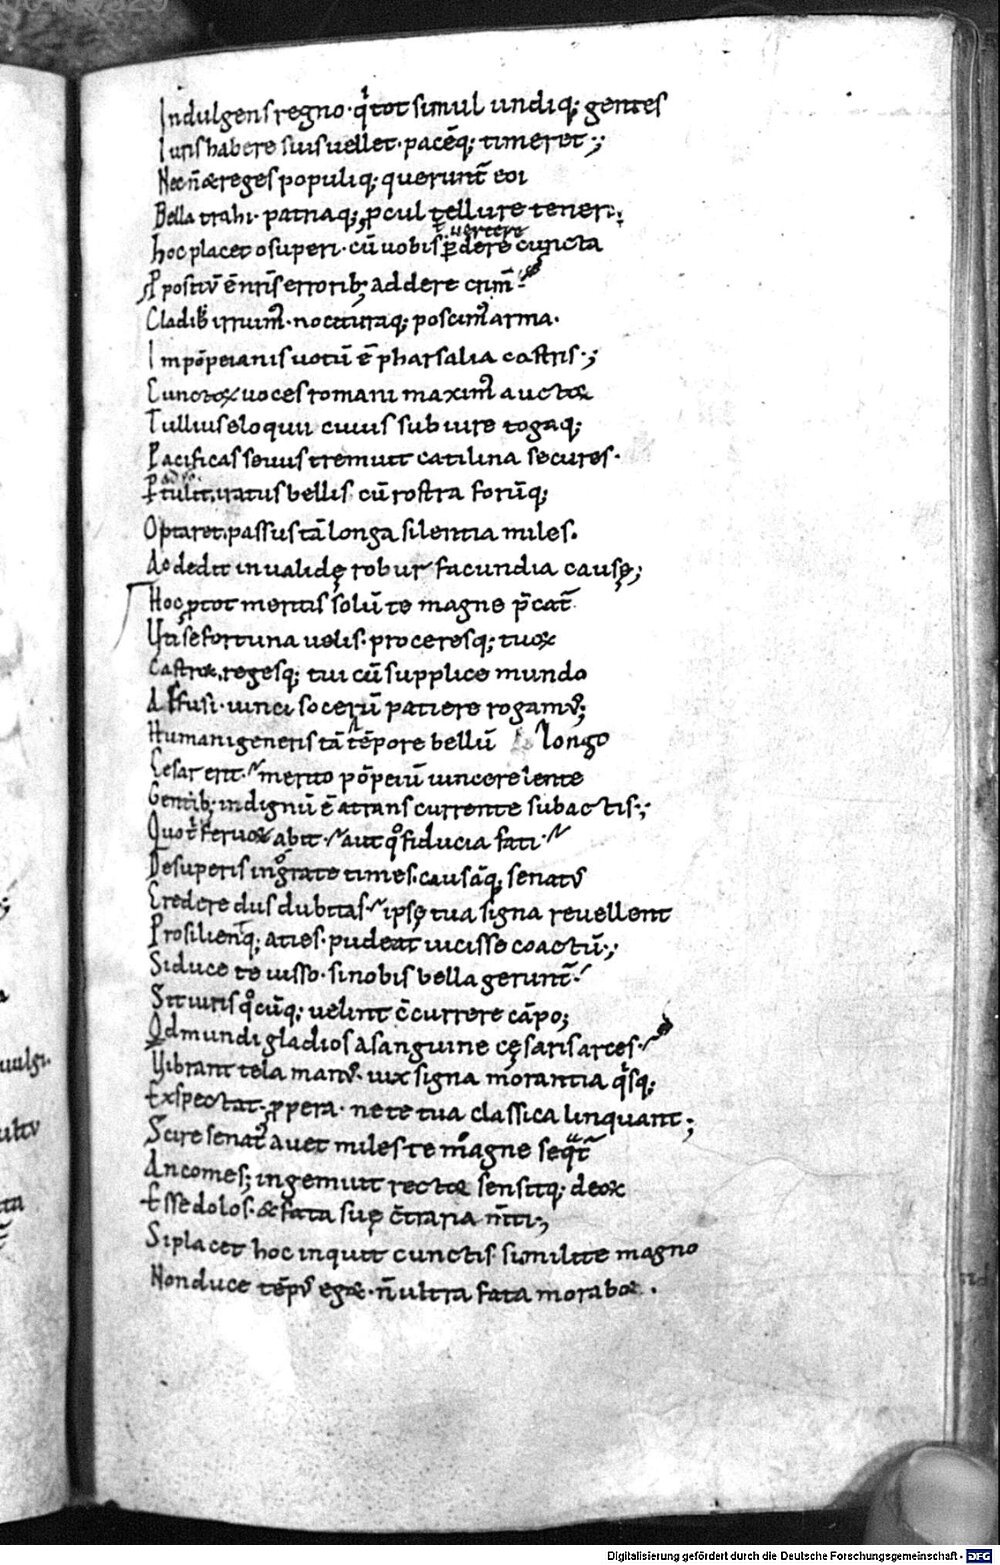 Indulgens regno· qͥ tot simul undiq; gentes
Iuris habere sui uellet· pacēq; timeret·;
Nec ñ & reges populiq; querunt̄ eoi
Bella trahi· patriaq; ꝓcul tellure teneri;
uertere
hoc placet o superi· cū uobis ꝑdere cuncta
Ppositū ē nr̄is errorib; addere crim̄
Cladib; irruim᷒· nocituraq; poscim᷒ arma·
Impōpeianis uotū ē pharsalia castris·;
Cunctoꝝ uoces romani maxim᷒ auctor
Tullius eloquii cuius sub iure togaq;
Pacificas seuus tremuit catilina secures·
ꝑtulit iratus bellis cū rostra forūq;
Optaret· passus tā longa silentia miles·
Addedit inualidę robur facundia causę;
Hoc ꝓ tot meritis solū te magne p̄cat᷒
Uti se fortuna uelis· proceresq; tuoꝝ
Castroꝝ, regesq; tui cū supplice mundo
Affusi· uinci socerū patiere rogam᷒;
Humani generis tā tēpore bellū longo
Cesar erit· merito pōpeiū uincere lente
Gentib; indignū ē a transcurrente subactis·;
Quo t̄ feruor abit· aut qͦ fiducia fati·
De superis ingrate times· causāq; senat᷒
Credere dis dubitas· ipsę tua signa reuellent
Prosilientq; aties· pudeat uicisse coactū·;
Si duce te iusso· si nobis bella gerunt̄·
Sit iuris qͦcūq; uelint c̄currere cāpo;
Qd mundi gladios a sanguine cęsaris arces·
Uibrant tela man᷒· uix signa morantia qͥsq;
Exspectat· ꝓpera· ne te tua classica linquant;
Scire senat᷒ auet miles te magne seqͣt᷒
An comes; ingemuit rector sensitq; deoꝝ
Esse dolos· & fata suę c̄traria m̄ti·;
Si placet hoc inquit cunctis· si milite magno
Non duce tēp᷒ eg&· ñ ultra fata morabor·
Digitalisierung gefördert durch die Deutsche Forschungsgemeinschaft - DFG